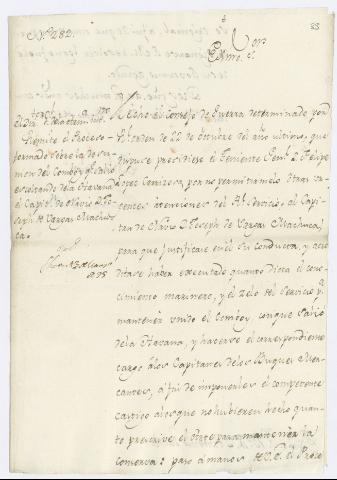 Nº 282.
33
Exmo. Sr.
Remite el Proceso
formado sobre la desu-
nion del Comboy q.e salio
escoltando dela Havana
el Capit.n de Navio D. Jo-
seph de Vargas Machu-
ca.
Hecho el Consejo de Guerra determinado por
R.l orden de 22 de Octubre del año ultimo, que
dispuse presidiese el Teniente Gen.l D. Felipe
Lopez Carrizosa, por no permitirmelo otras va-
atenciones del R.l Servicio, al Capi-
tan de Navio D. Joseph de Vargas Machuca,
para que justificase en él su conducta, y acre-
ditase haver executado quanto dicta el cono-
cimiento marinero, y el zelo del Servicio p.a
mantener unido el Comboy, conque salió
dela Havana, y hacerse el correspondiente
cargo álos Capitanes delos Buques Mer-
cantes, á fin de imponerles el competente
castigo alos que no hubieren hecho quan-
to previene el para mantener la
conserva: paso á manos de V.E. el Proce-